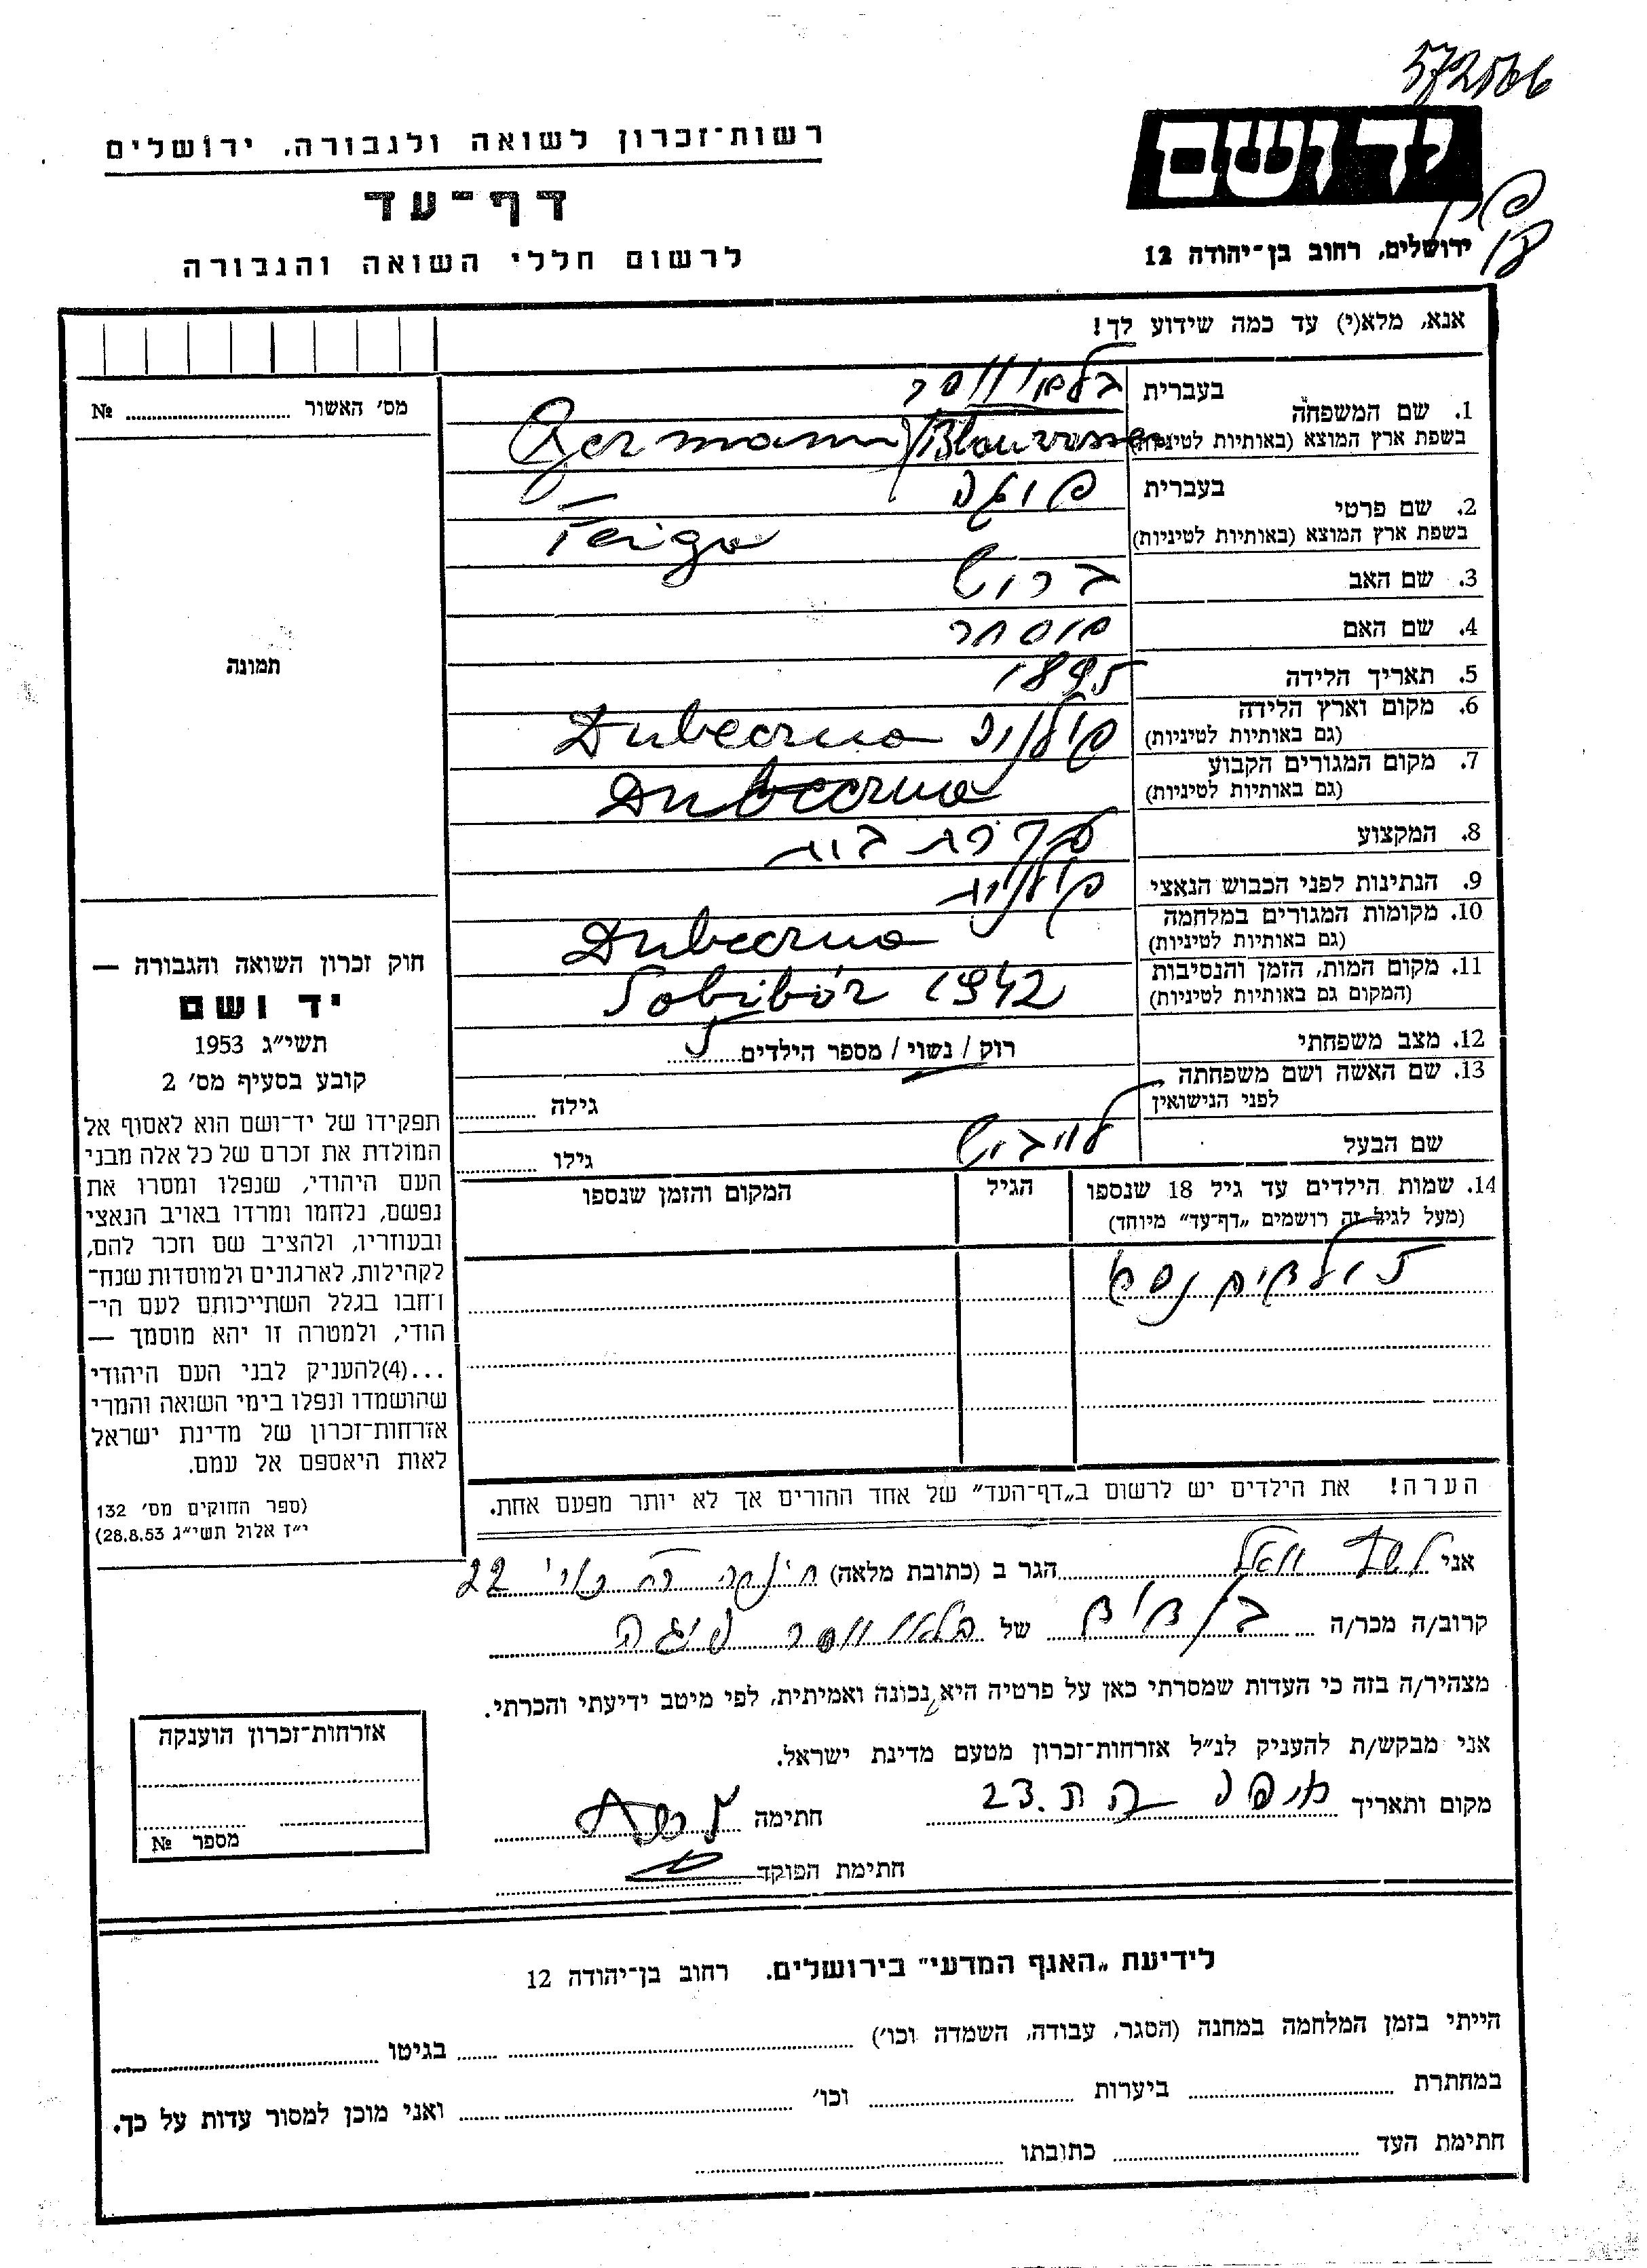 572566
יד ושם
ירושלים, רחוב בן־יהודה 12
רשות־זכרון לשואה ולגבורה, ירושלים
דף־עד
לרשום חללי השואה והגבורה
אנא, מלא(י) עד כמה שידוע לך!
מס׳ האשור №
תמונה
1. שם המשפחה בעברית בלאווסר
בשפת ארץ המוצא (באותיות לטיניות)
2. שם פרטי בעברית פיגה
בשפת ארץ המוצא (באותיות לטיניות) Feiga
3. שם האב ברוש
4. שם האם
5. תאריך הלידה 1895
6. מקום וארץ הלידה (גם באותיות לטיניות) פולניה Dubeczno
7. מקום המגורים הקבוע (גם באותיות לטיניות) Dubeczno
8. המקצוע עקרת בית
9. הנתינות לפני הכבוש הנאצי פולנית
10. מקומות המגורים במלחמה (גם באותיות לטיניות) Dubeczno
11. מקום המות, הזמן והנסיבות (המקום גם באותיות לטיניות) Sobibór 1942
12. מצב משפחתי רוק / נשוי / מספר הילדים 5
13. שם האשה ושם משפחתה לפני הנישואין גילה
שם הבעל לייבוש גילו
14. שמות הילדים עד גיל 18 שנספו (מעל לגיל זה רושמים „דף־עד״ מיוחד) הגיל המקום והזמן שנספו
5 ילדים נספו
הערה! את הילדים יש לרשום ב„דף־העד״ של אחד ההורים אך לא יותר מפעם אחת.
חוק זכרון השואה והגבורה —
יד ושם
תשי״ג 1953
קובע בסעיף מס׳ 2
תפקידו של יד־ושם הוא לאסוף אל
המולדת את זכרם של כל אלה מבני
העם היהודי, שנפלו ומסרו את
נפשם, נלחמו ומרדו באויב הנאצי
ובעוזריו, ולהציב שם וזכר להם,
לקהילות, לארגונים ולמוסדות שנח־
רחבו בגלל השתייכותם לעם הי־
הודי, ולמטרה זו יהא מוסמך —
...(4)להעניק לבני העם היהודי
שהושמדו ונפלו בימי השואה והמרי
אזרחות־זכרון של מדינת ישראל
לאות היאספם אל עמם.
(ספר החוקים מס׳ 132
י״ז אלול תשי״ג 28.8.53)
אני הגר ב (כתובת מלאה) 22
קרוב/ה מכר/ה בן דוד של בלאו ווסר פיגה
מצהיר/ה בזה כי העדות שמסרתי כאן על פרטיה היא נכונה ואמיתית, לפי מיטב ידיעתי והכרתי.
אני מבקש/ת להעניק לנ״ל אזרחות־זכרון מטעם מדינת ישראל.
מקום ותאריך 23. חתימה
חתימת הפוקד
אזרחות־זכרון הוענקה
מספר №
לידיעת „האגף המדעי״ בירושלים. רחוב בן־יהודה 12
הייתי בזמן המלחמה במחנה (הסגר, עבודה, השמדה וכו׳) בגיטו
במחתרת ביערות וכו׳ ואני מוכן למסור עדות על כך.
חתימת העד כתובתו